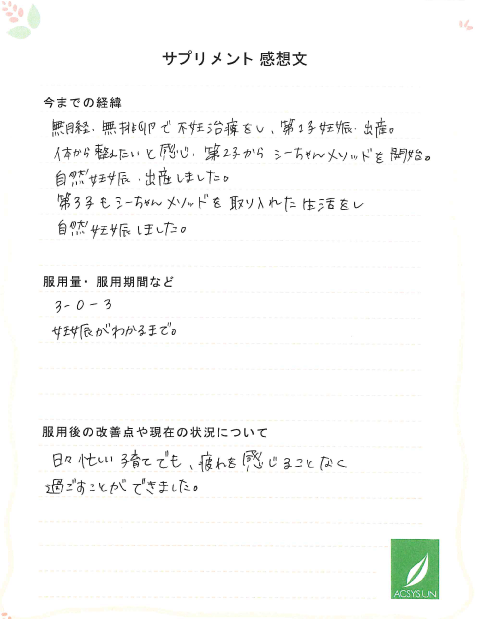 サプリメント 感想文
今までの経緯
無月経・無排卵で不妊治療をし、第1子妊娠・出産。
体から整えたいと感じ、第2子からシーちゃんメソッドを開始。
自然妊娠・出産しました。
第3子もシーちゃんメソッドを取り入れた生活をし
自然妊娠しました。
服用量・服用期間など
3-0-3
妊娠がわかるまで。
服用後の改善点や現在の状況について
日々忙しい子育てでも、疲れを感じることなく
過ごすことができました。
ACSYSUN